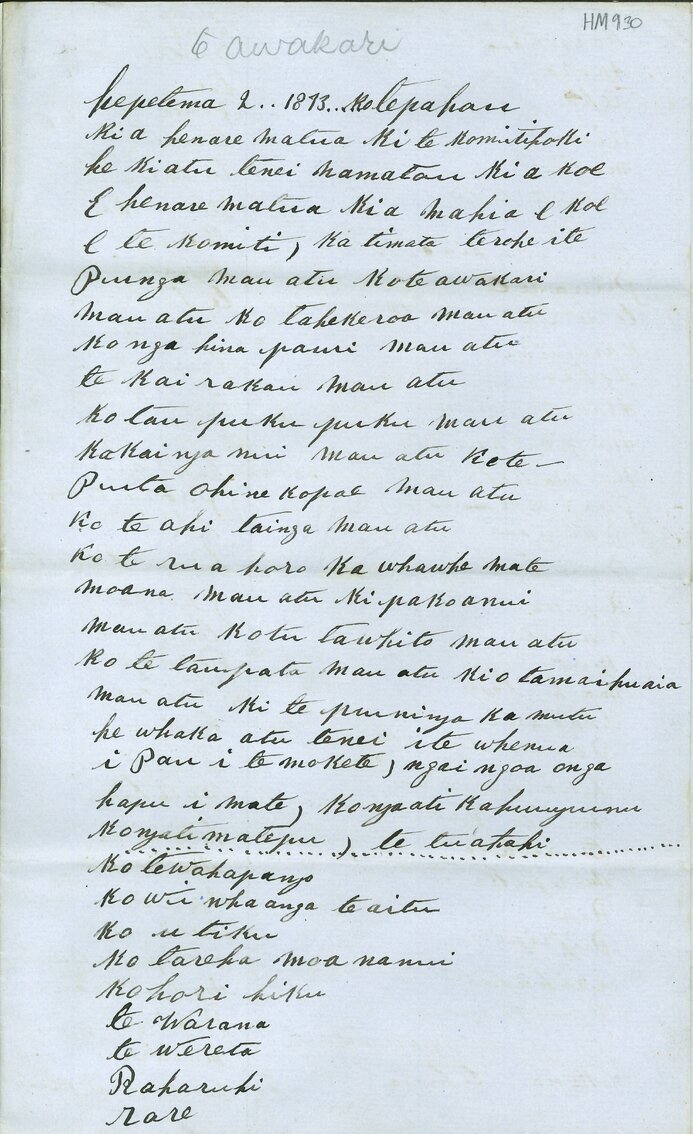 HM930
te awakari
hepetema 2.. 1873... Kotepapau
Ki a henare matua Ki te Komiti hoki
he Ki atu tenei namatou Ki a koe
E henare matua Kia mahia e koe
E te Komiti, Ka timata terohe ite
Punga mau atu Kote awakari
mau atu Ko tahekeroa mau atu
Ko nga hina pouri mau atu
te Kai rakau mau atu
Ko tau puku puku mau atu
Kokainga nui mau atu Kote-
Puta ohine kopae mau atu
Ko te ahi tainga mau atu
Ko te rua horo Ka whawhe mate
moana mau atu Ki pakoanui
mau atu Kotu tawhito mau atu
Ko te taupata mau atu Ki otamaihuaia
mau atu Ki te puninga Ka mutu
he whaka atu tenei ite whenua
i Pau i te mokete, ngai ngoa onga
hapu i mate, Kongaati Kahuuyunu
Kongati matepu, te tuatahi
Ko tewahapango
Ko wi whaanga te aitu
Ko u tiku
Ko tareha moananui
Kohori hiku
te Warana
te wereta
Raharuhi
rare